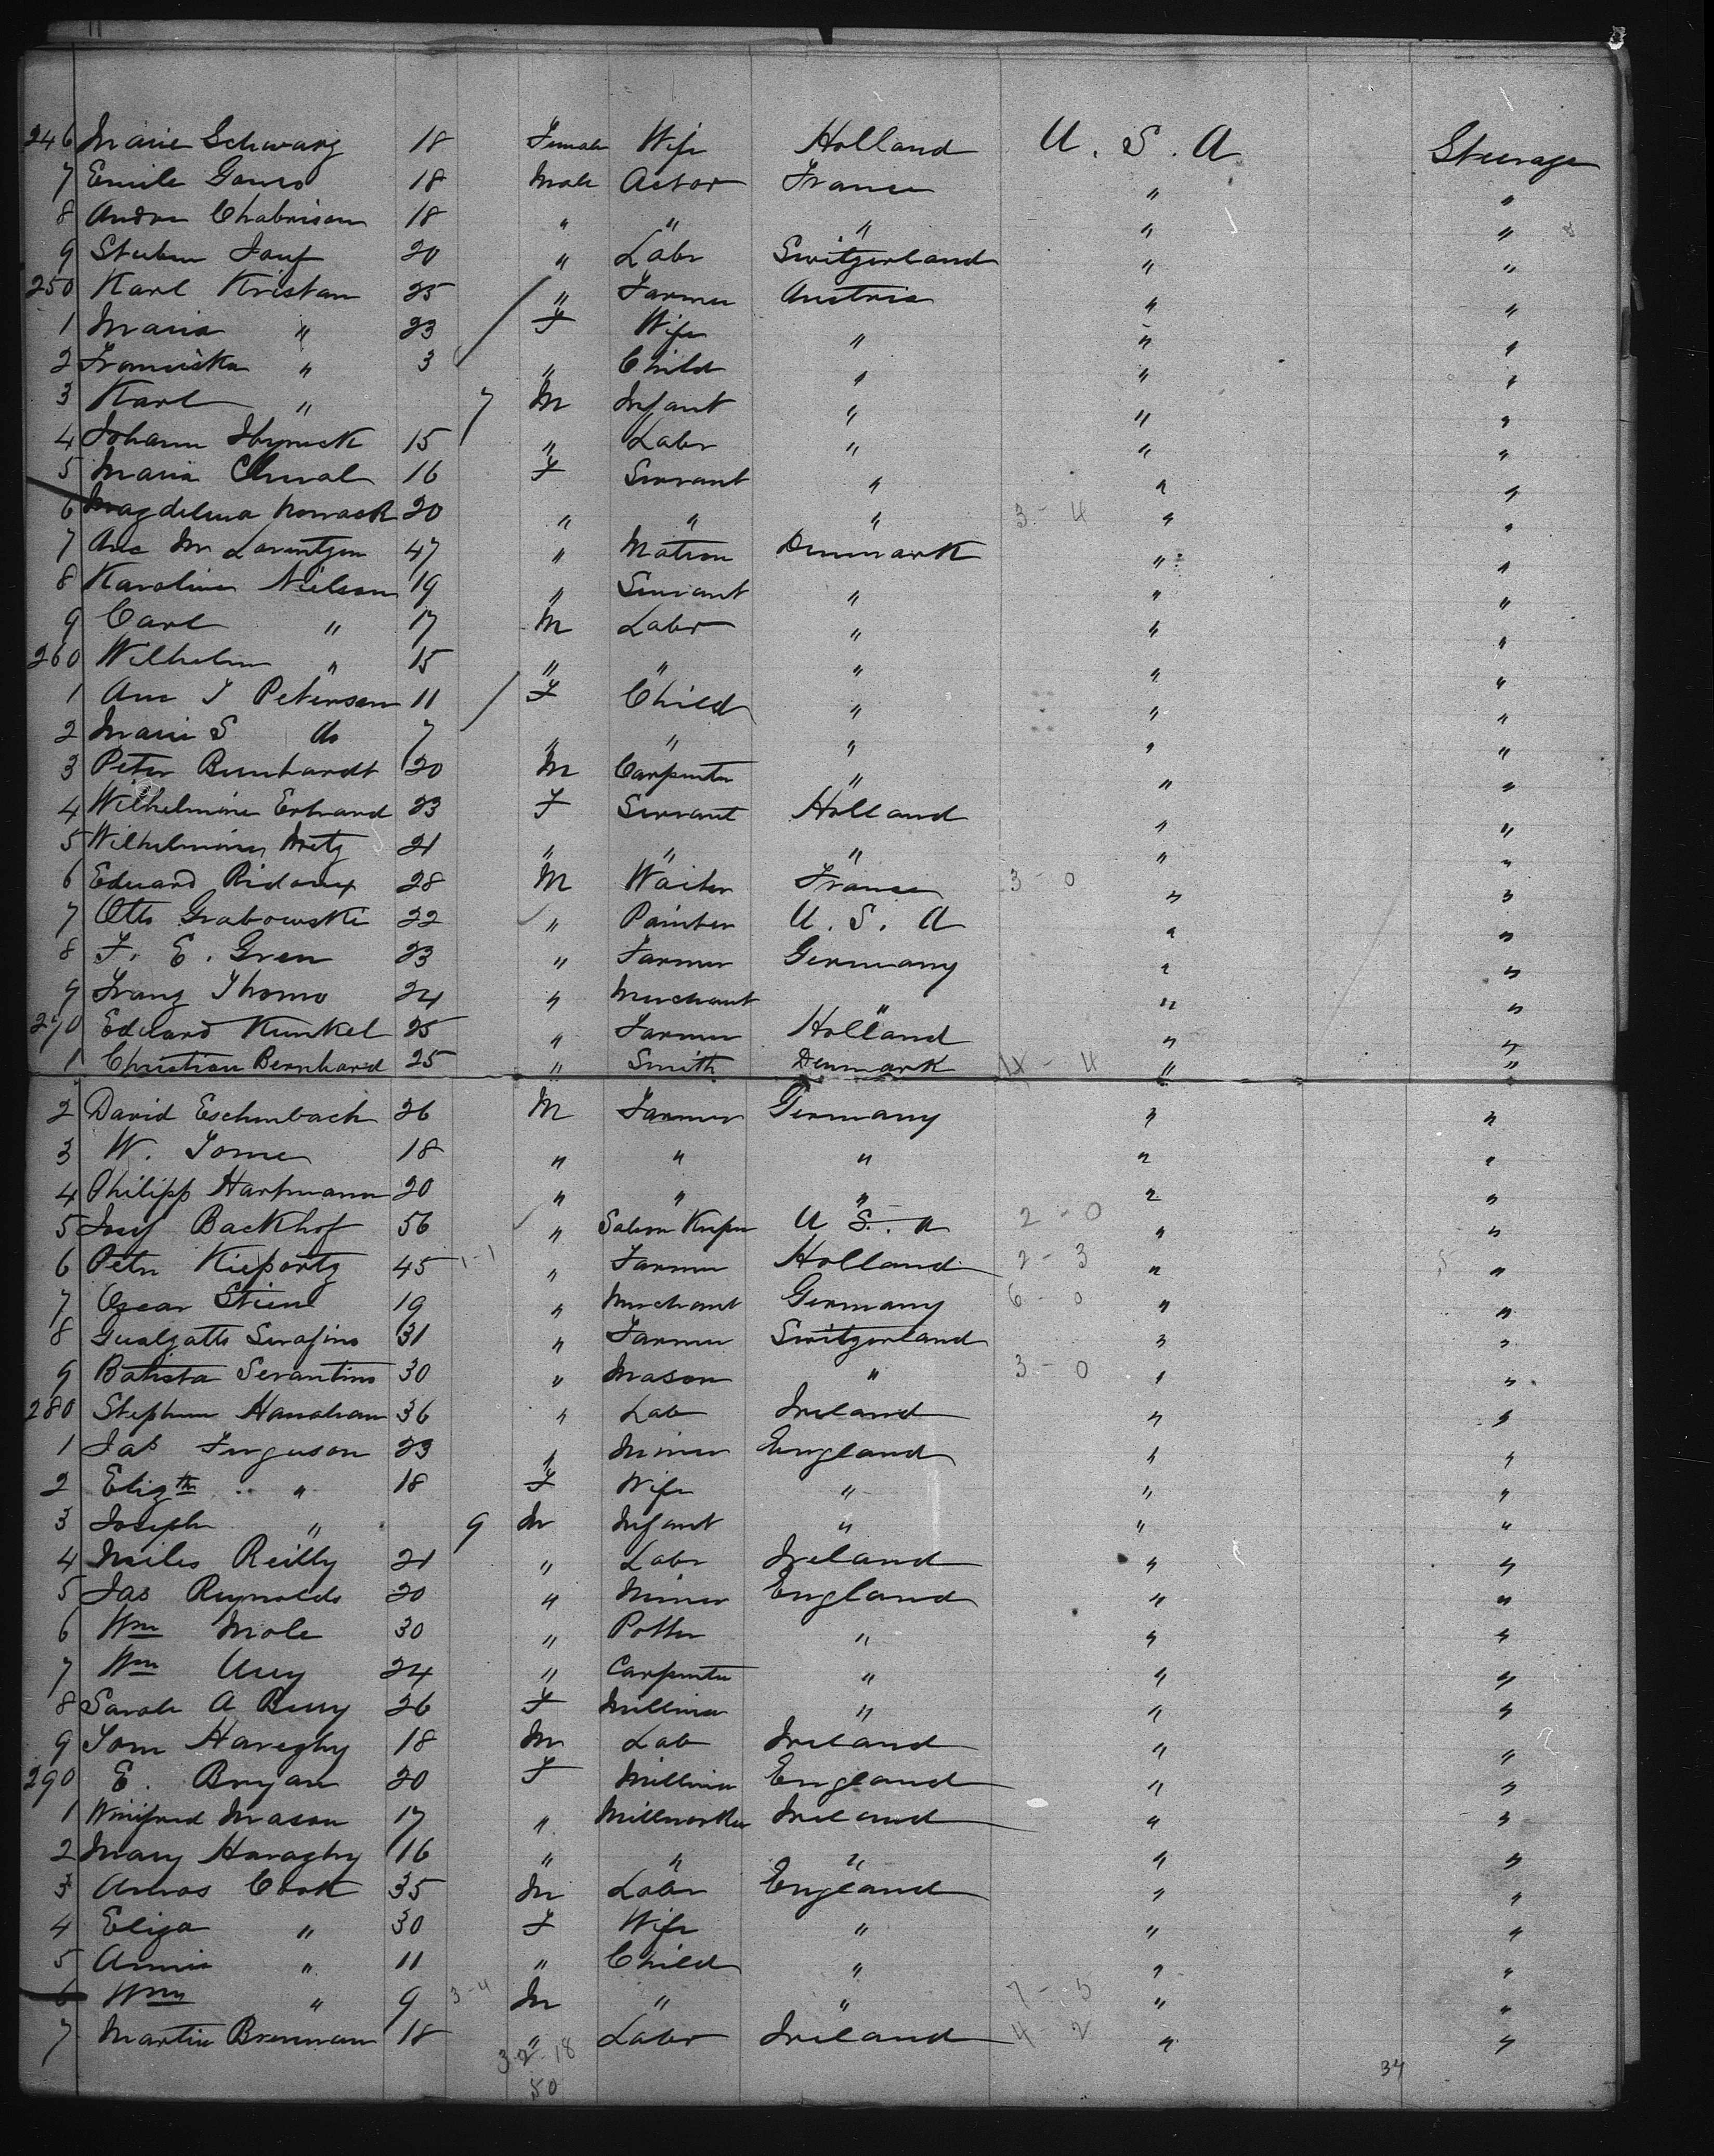 246 Marie Schwarz 18 Female Wife Holland U. S. A Steerage
7 Emile 18 Male Actor France " "
8 Andre Chabrison 18 " " " " "
9 20 " Labr Switzerland " "
250 Karl Kristan 25 " Farmer Austria " "
1 Maria " 23 F Wife " " "
2 Franziska " 3 " Child " " "
3 Karl " 7 M Infant " " "
4 Johann 15 " Labr " " "
5 Maria 16 F Servant " " "
6 Magdelena Nowack 20 " " " 3 - 4 " "
7 Ane M Lorentzen 47 " Matron Denmark " "
8 Karoline Nielson 19 " Servant " " "
9 Carl " 17 M Labr " " "
260 Wilhelm " 15 " " " " "
1 Ane J Peterson 11 F Child " " "
2 Marie S do 7 " " " " "
3 Peter Bernhardt 20 M Carpenter " " "
4 Wilhelmine Erhard 23 F Servant Holland " "
5 Wilhelmine Metz 21 " " " " "
6 Eduard Ridoux 28 M Waiter France 3 - 0 " "
7 Otto Grabowski 22 " Painter U. S. A " "
8 F. E. Gren 23 " Farmer Germany " "
9 Franz Thomo 24 " Merchant " " "
270 Eduard Kunkel 25 " Farmer Holland " "
1 Christian Bernhard 25 " Smith Denmark - 4 " "
2 David Eschenbach 26 M Farmer Germany " "
3 W. 18 " " " " "
4 Philipp Hartmann 20 " " " " "
5 Josef Backhof 56 " Saloon Keeper U. S. A 2 - 0 " "
6 Peter Kieportz 45 1-1 " Farmer Holland 2 - 3 " "
7 Oscar 19 " Merchant Germany 6 - 0 " "
8 Serafino 31 " Farmer Switzerland " "
9 Batista Serantino 30 " Mason " 3 - 0 " "
280 Stephen Hanahan 36 " Lab Ireland " "
1 Jas Ferguson 23 " Miner England " "
2 Elizth " 18 F Wife " " "
3 Joseph " 9 M Infant " " "
4 Miles Reilly 21 " Labr Ireland " "
5 Jas Reynolds 20 " Miner England " "
6 Wm Mole 30 " Potter " " "
7 Wm 24 " Carpenter " " "
8 Sarah A Berry 26 F Milliner " " "
9 Tom Haveghy 18 M Lab Ireland " "
290 E. Bryan 20 F Milliner England " "
1 Winifred Mason 17 " Millworker Ireland " "
2 Mary Haraghy 16 " " " " "
3 Amos Cook 35 M Labr England " "
4 Eliza " 30 F Wife " " "
5 Annie " 11 " Child " " "
6 Wm " 9 3-4 M " " 7 - 5 " "
7 Martin Brennan 18 " Labr Ireland 4 - 2 " "
32-18 34
50